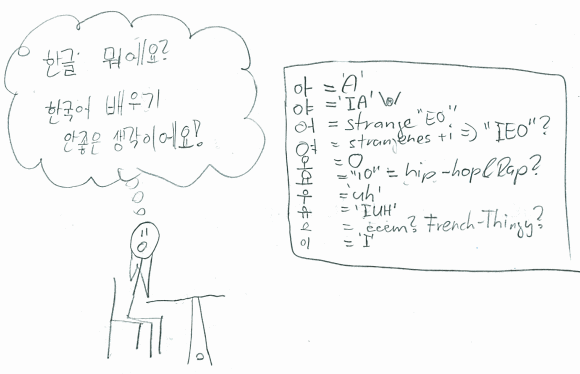 한글: 뭐에요?
한국어 배우기
안좋은 생각이에요!
아 = 'A'
야 = 'IA' \o/
어 = strange "EO"
여 = stranjenes + i => "IEO"?
오 = O
요 = "IO" = hip-hop/Rap?
우 = 'uh'
유 = 'IUH'
으 = eeem? French-Thingy?
이 = 'I'